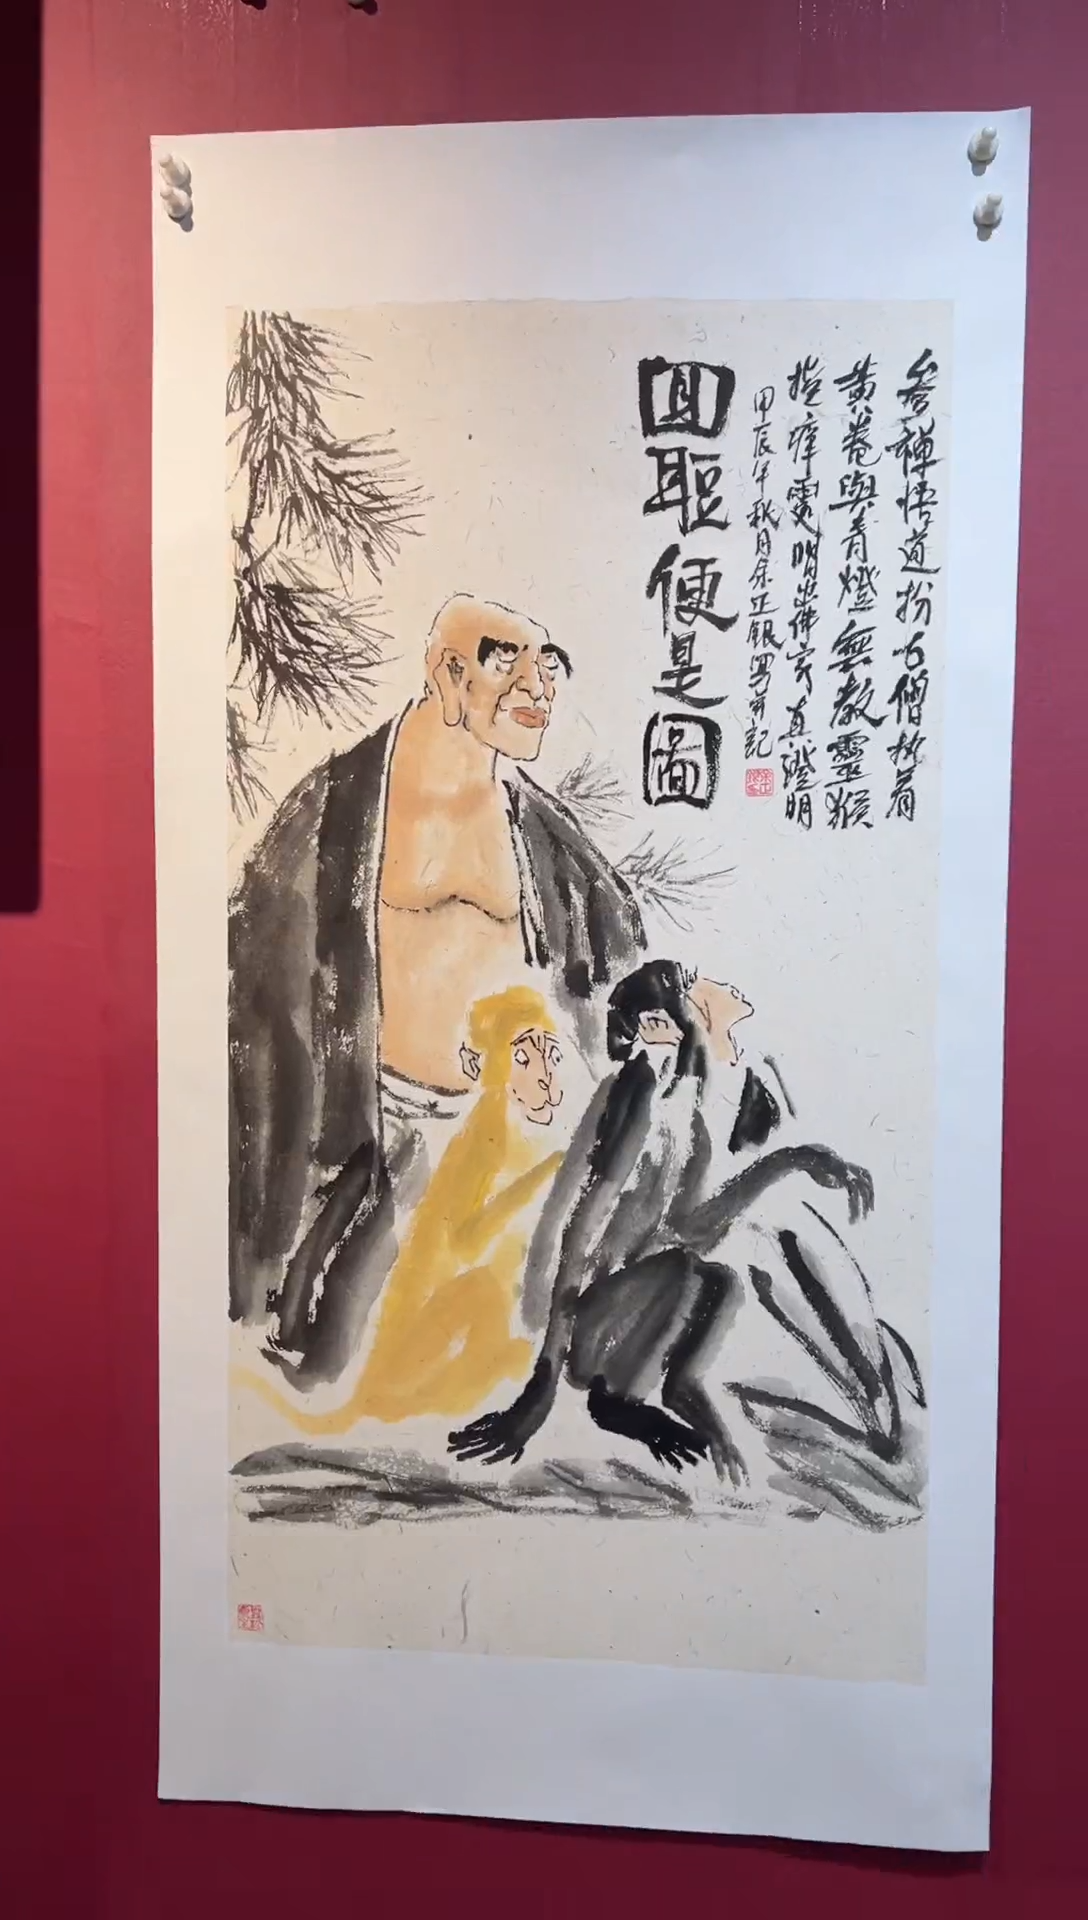 參禪悟道扮古僧執着
黃卷與青燈無教靈猴
痒處明出佛家真澄明
甲辰年秋月余正銀寫並記
便是圖